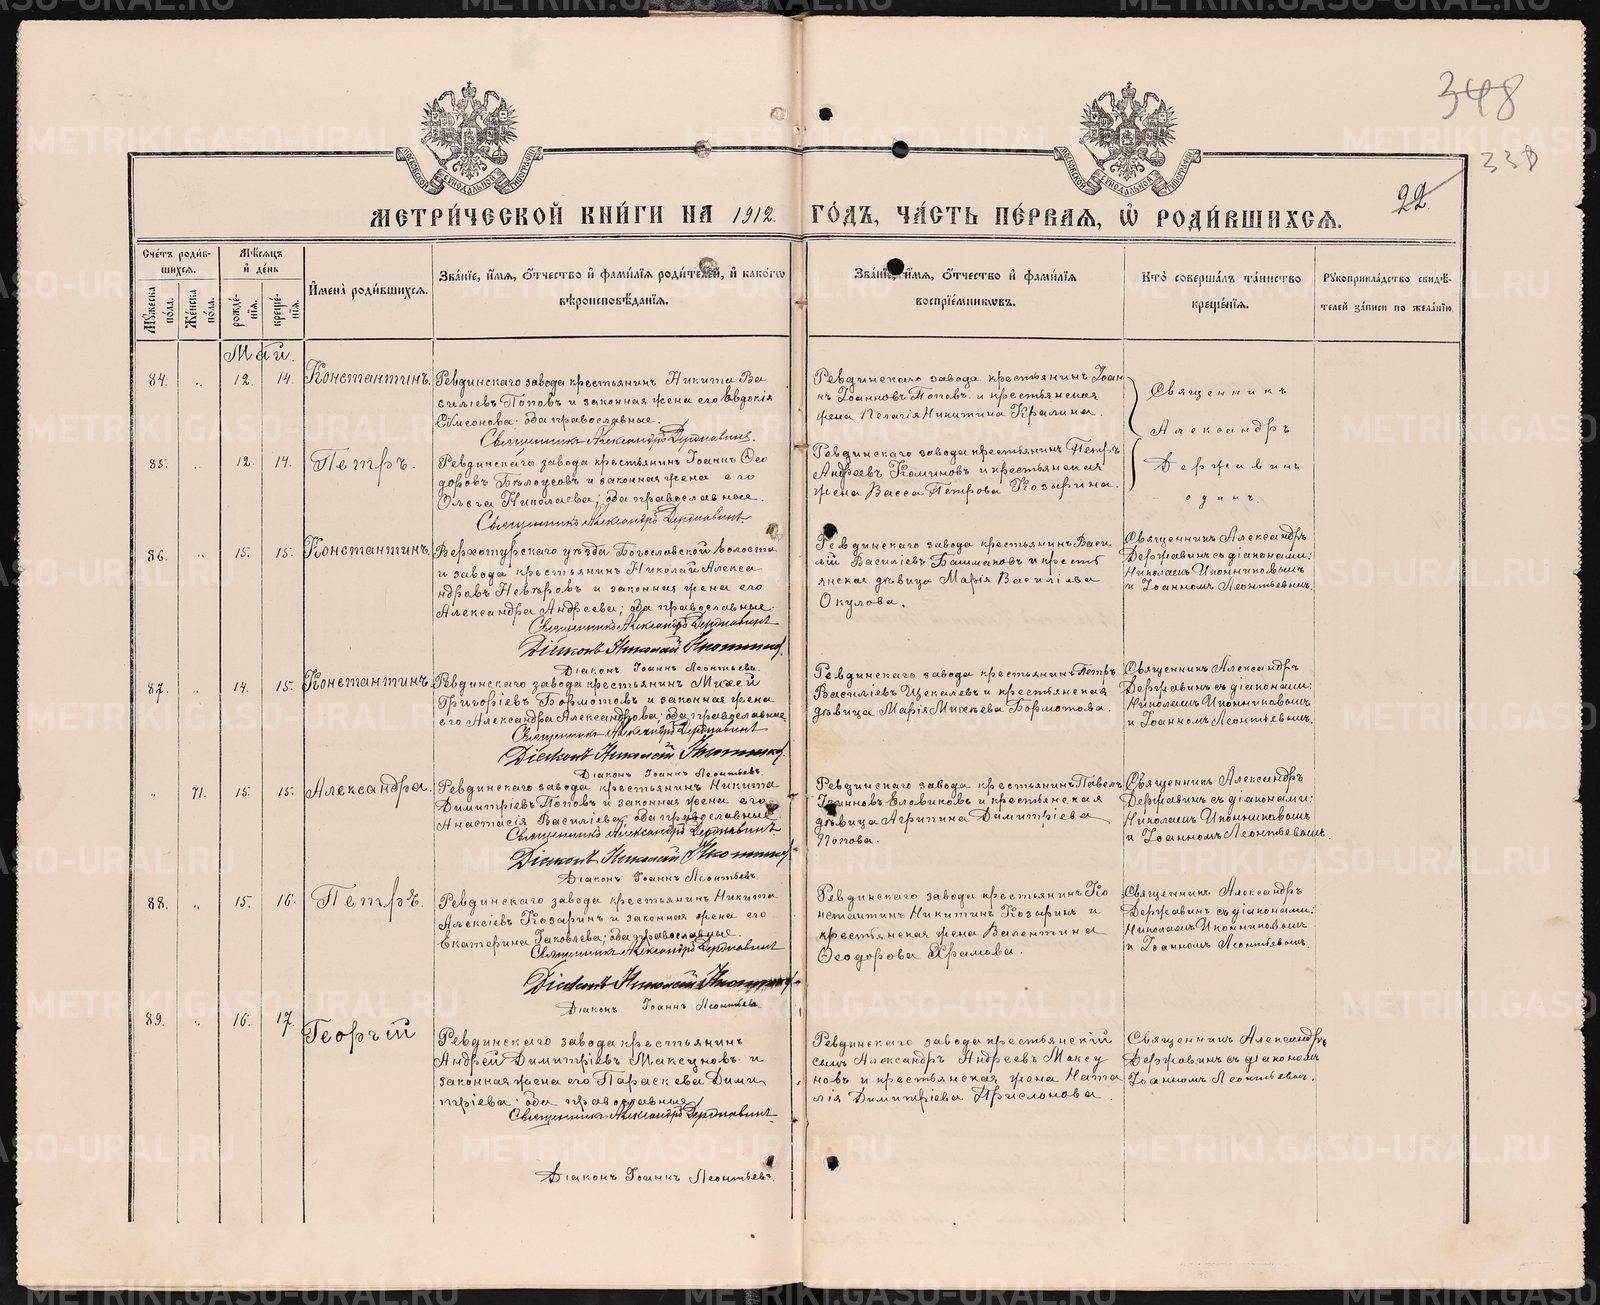 348
338
22
МОСКОВСКОЙ СУНОДАЛЬНОЙ ТИПОГРАФІИ
МОСКОВСКОЙ СУНОДАЛЬНОЙ ТИПОГРАФІИ
МЕТРИ́ЧЕСКОЙ КНИ́ГИ НА 1912. ГО́ДЪ, ЧА́СТЬ ПЕ́РВАЯ, Ѡ РОДИ́ВШИХСЯ.
Сче́тъ роди́вшихся.
Мѣ́сяцъ и҆ де́нь
И҆мена̀ роди́вшихся.
Зва́нїе, и҆́мя, ѻ҆́тчество и҆ фами́лїя роди́телей, и҆ како́гѡ вѣроисповѣ́данїя.
Зва́нїе, и҆́мя, ѻ҆́тчество и҆ фами́лїя воспрїе́мникѡвъ.
Кто̀ соверша́лъ та́инство креще́нїя.
Рꙋкоприкла́дство свидѣ́телей за́писи по жела́нїю
Мꙋ́жеска по́ла.
Же́нска по́ла.
рожде́нїя.
креще́нїя.
Май.
84. „ 12. 14. Константинъ.
Ревдинскаго завода крестьянинъ Никита Ва
сильевъ Поповъ и законная жена его Евдокія
Сѵмеонова: оба православные.
Священникъ Александръ Державинъ.
Ревдинскаго завода крестьянинъ Іоан
нъ Іоанновъ Поповъ и крестьянская
жена Пелагія Никитина Кралина.
Священникъ
Александръ
Державинъ
одинъ.
85. „ 12. 14. Петръ.
Ревдинскаго завода крестьянинъ Іоаннъ Ѳео
доровъ Бѣлоусовъ и законная жена его
Ольга Николаева; оба православные.
Священникъ Александръ Державинъ
Ревдинскаго завода крестьянинъ Петръ
Андреевъ Коминовъ и крестьянская
жена Васса Петрова Козырина.
86. „ 15. 15. Константинъ.
Верхотурскаго уѣзда Богословской волости
и завода крестьянинъ Николай Алекса
ндровъ Невѣровъ и законная жена его
Александра Андреева; оба православные.
Священникъ Александръ Державинъ
Діаконъ Николай Иконниковъ
Діаконъ Іоаннъ Леонтьевъ.
Ревдинскаго завода крестьянинъ Васи
лій Василіевъ Башмаковъ и кресть
янская дѣвица Марія Василіева
Окулова.
Священникъ Александръ
Державинъ съ діаконами:
Николаемъ Иконниковымъ
и Іоанномъ Леонтьевымъ.
87. „ 14. 15. Константинъ.
Ревдинскаго завода крестьянинъ Михей
Григоріевъ Бормотовъ и законная жена
его Александра Александрова; оба православные.
Священникъ Александръ Державинъ
Діаконъ Николай Иконниковъ
Діаконъ Іоаннъ Леонтьевъ
Ревдинскаго завода крестьянинъ Петръ
Василіевъ Щекалевъ и крестьянская
дѣвица Марія Михеева Бормотова.
Священникъ Александръ
Державинъ съ діаконами:
Николаемъ Иконниковымъ
и Іоанномъ Леонтьевымъ.
„ 71. 15. 15. Александра.
Ревдинскаго завода крестьянинъ Никита
Димитріевъ Поповъ и законная жена его
Анастасія Василіева; оба православные
Священникъ Александръ Державинъ
Діаконъ Николай Иконниковъ
Діаконъ Іоаннъ Леонтьевъ.
Ревдинскаго завода крестьянинъ Павелъ
Іоанновъ Еловиковъ и крестьянская
дѣвица Агрипина Димитріева
Попова.
Священникъ Александръ
Державинъ съ діаконами:
Николаемъ Иконниковымъ
и Іоанномъ Леонтьевымъ.
88. „ 15. 16. Петръ.
Ревдинскаго завода крестьянинъ Никита
Алексіевъ Козаринъ и законная жена его
Екатерина Іаковлева; оба православные.
Священникъ Александръ Державинъ
Діаконъ Николай Иконниковъ
Діаконъ Іоаннъ Леонтьевъ
Ревдинскаго завода крестьянинъ Ко
нстантинъ Никитинъ Козаринъ и
крестьянская жена Валентина
Ѳеодорова Храмова.
Священникъ Александръ
Державинъ съ діаконами:
Николаемъ Иконниковымъ
и Іоанномъ Леонтьевымъ.
89. „ 16. 17. Георгій
Ревдинскаго завода крестьянинъ
Андрей Димитріевъ Максуновъ и
законная жена его Параскева Дими
тріева: оба православные
Священникъ Александръ Державинъ
Діаконъ Іоаннъ Леонтьевъ.
Ревдинскаго завода крестьянскій
сынъ Александръ Андреевъ Максу
новъ и крестьянская жена Ната
лія Димитріева Присмонова.
Священникъ Александръ
Державинъ съ діакономъ
Іоанномъ Леонтьевымъ.
METRIKI.GASO-URAL.RU